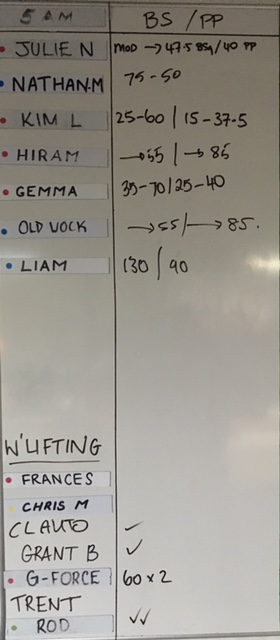 5 AM BS / PP
JULIE N MOD → 47.5 BSq / 40 PP
NATHAN.M 75-50
KIM L 25-60 | 15-37.5
HIRAM →55 | → 85
GEMMA 35-70 | 25-40
OLD VOCK →55 / → 85.
LIAM 130 / 90
W'LIFTING
FRANCES
CHRIS M
CLAUTO ✓
GRANT B ✓
G-FORCE 60 x 2
TRENT
ROD ✓✓